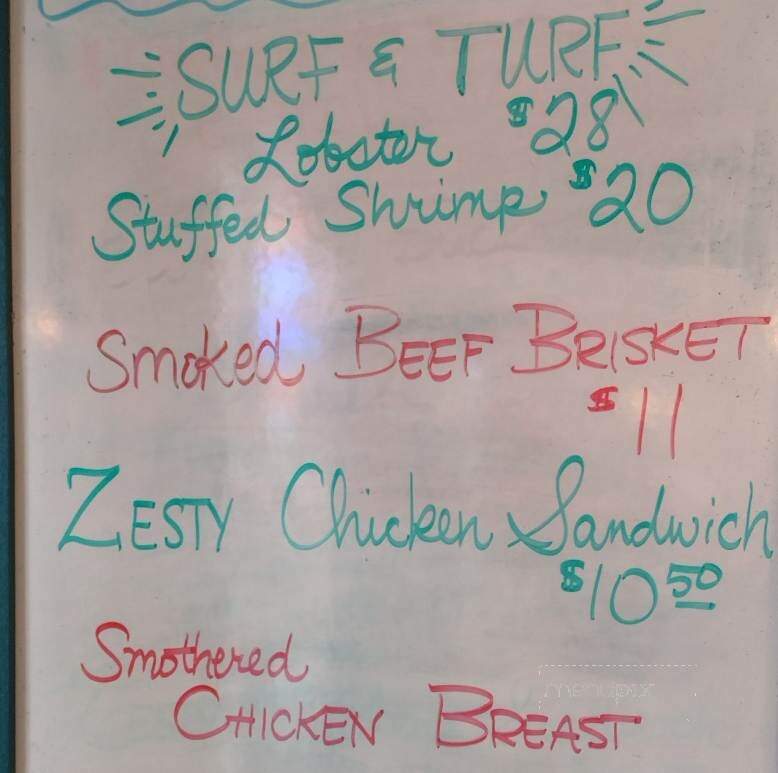 SURF & TURF
Lobster $28
Stuffed Shrimp $20
Smoked BEEF BRISKET
$11
ZESTY Chicken Sandwich
$10 50
Smothered
CHICKEN BREAST
menupix